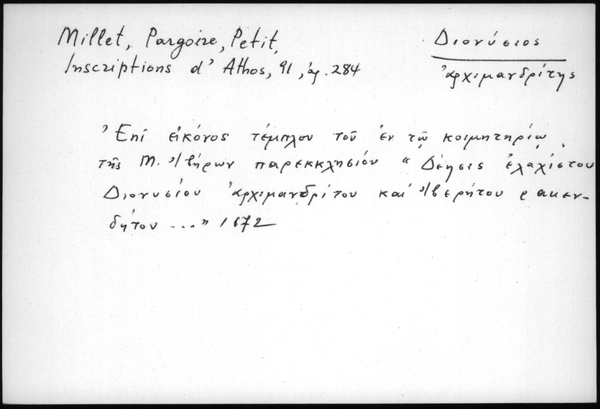 Millet, Pargoire, Petit,
Inscriptions d' Athos, 91, ἀρ. 284
Διονύσιος
ἀρχιμανδρίτης
Ἐπί εἰκόνος τέμπλου τοῦ ἐν τῷ κοιμητηρίῳ
τῆς Μ. Ἰβήρων παρεκκλησίου "Δέησις ἐλαχίστου
Διονυσίου ἀρχιμανδρίτου καί Ἰβερήτου ρακεν-
δήτου ..." 1672